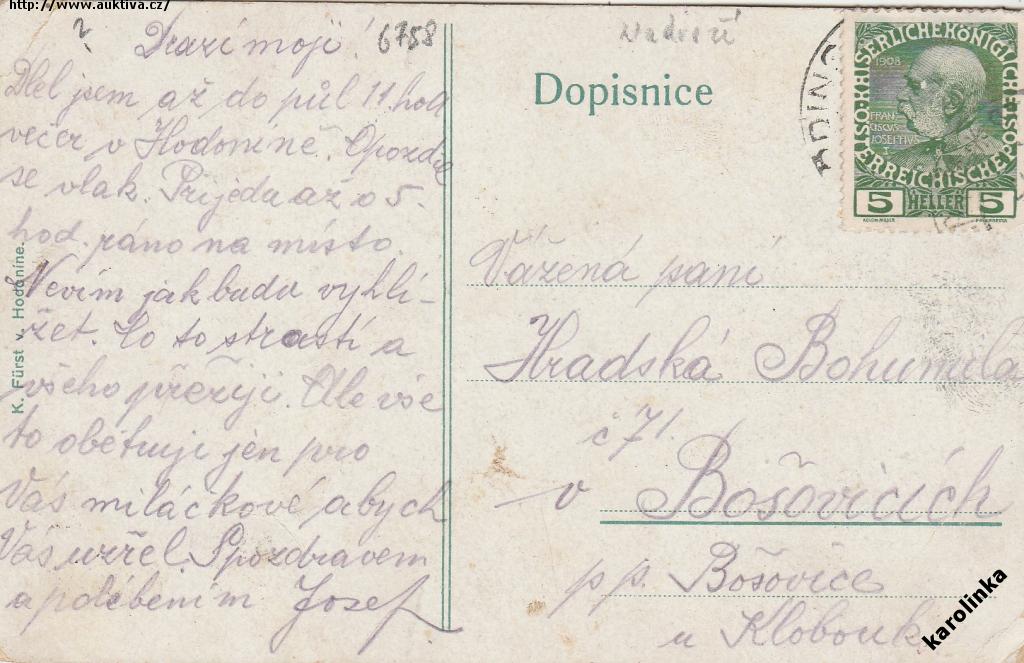 http://www.auktiva.cz/
Drazí moji! 6758
Dlel jsem až do půl 11 hod
večer v Hodoníně. Opozdil
se vlak. Přijedu až o 5.
hod. ráno na místo.
Nevím jak budu vyhlí-
žet. Co to strastí a
všeho přežiji. Ale vše
to obětuji jen pro
Vás miláčkové abych
Vás uzřel. S pozdravem
a políbením Josef
K. Fürst v Hodoníně.
Dopisnice
KAISERLICHE KÖNIGLICHE ÖSTERREICHISCHE POST
1908
FRANCISCUS JOSEPHUS I
5 HELLER 5
Vážená paní
Hradská Bohumila
č 71.
v Bošovicích
p p. Bošovice
u Klobouk
karolinka